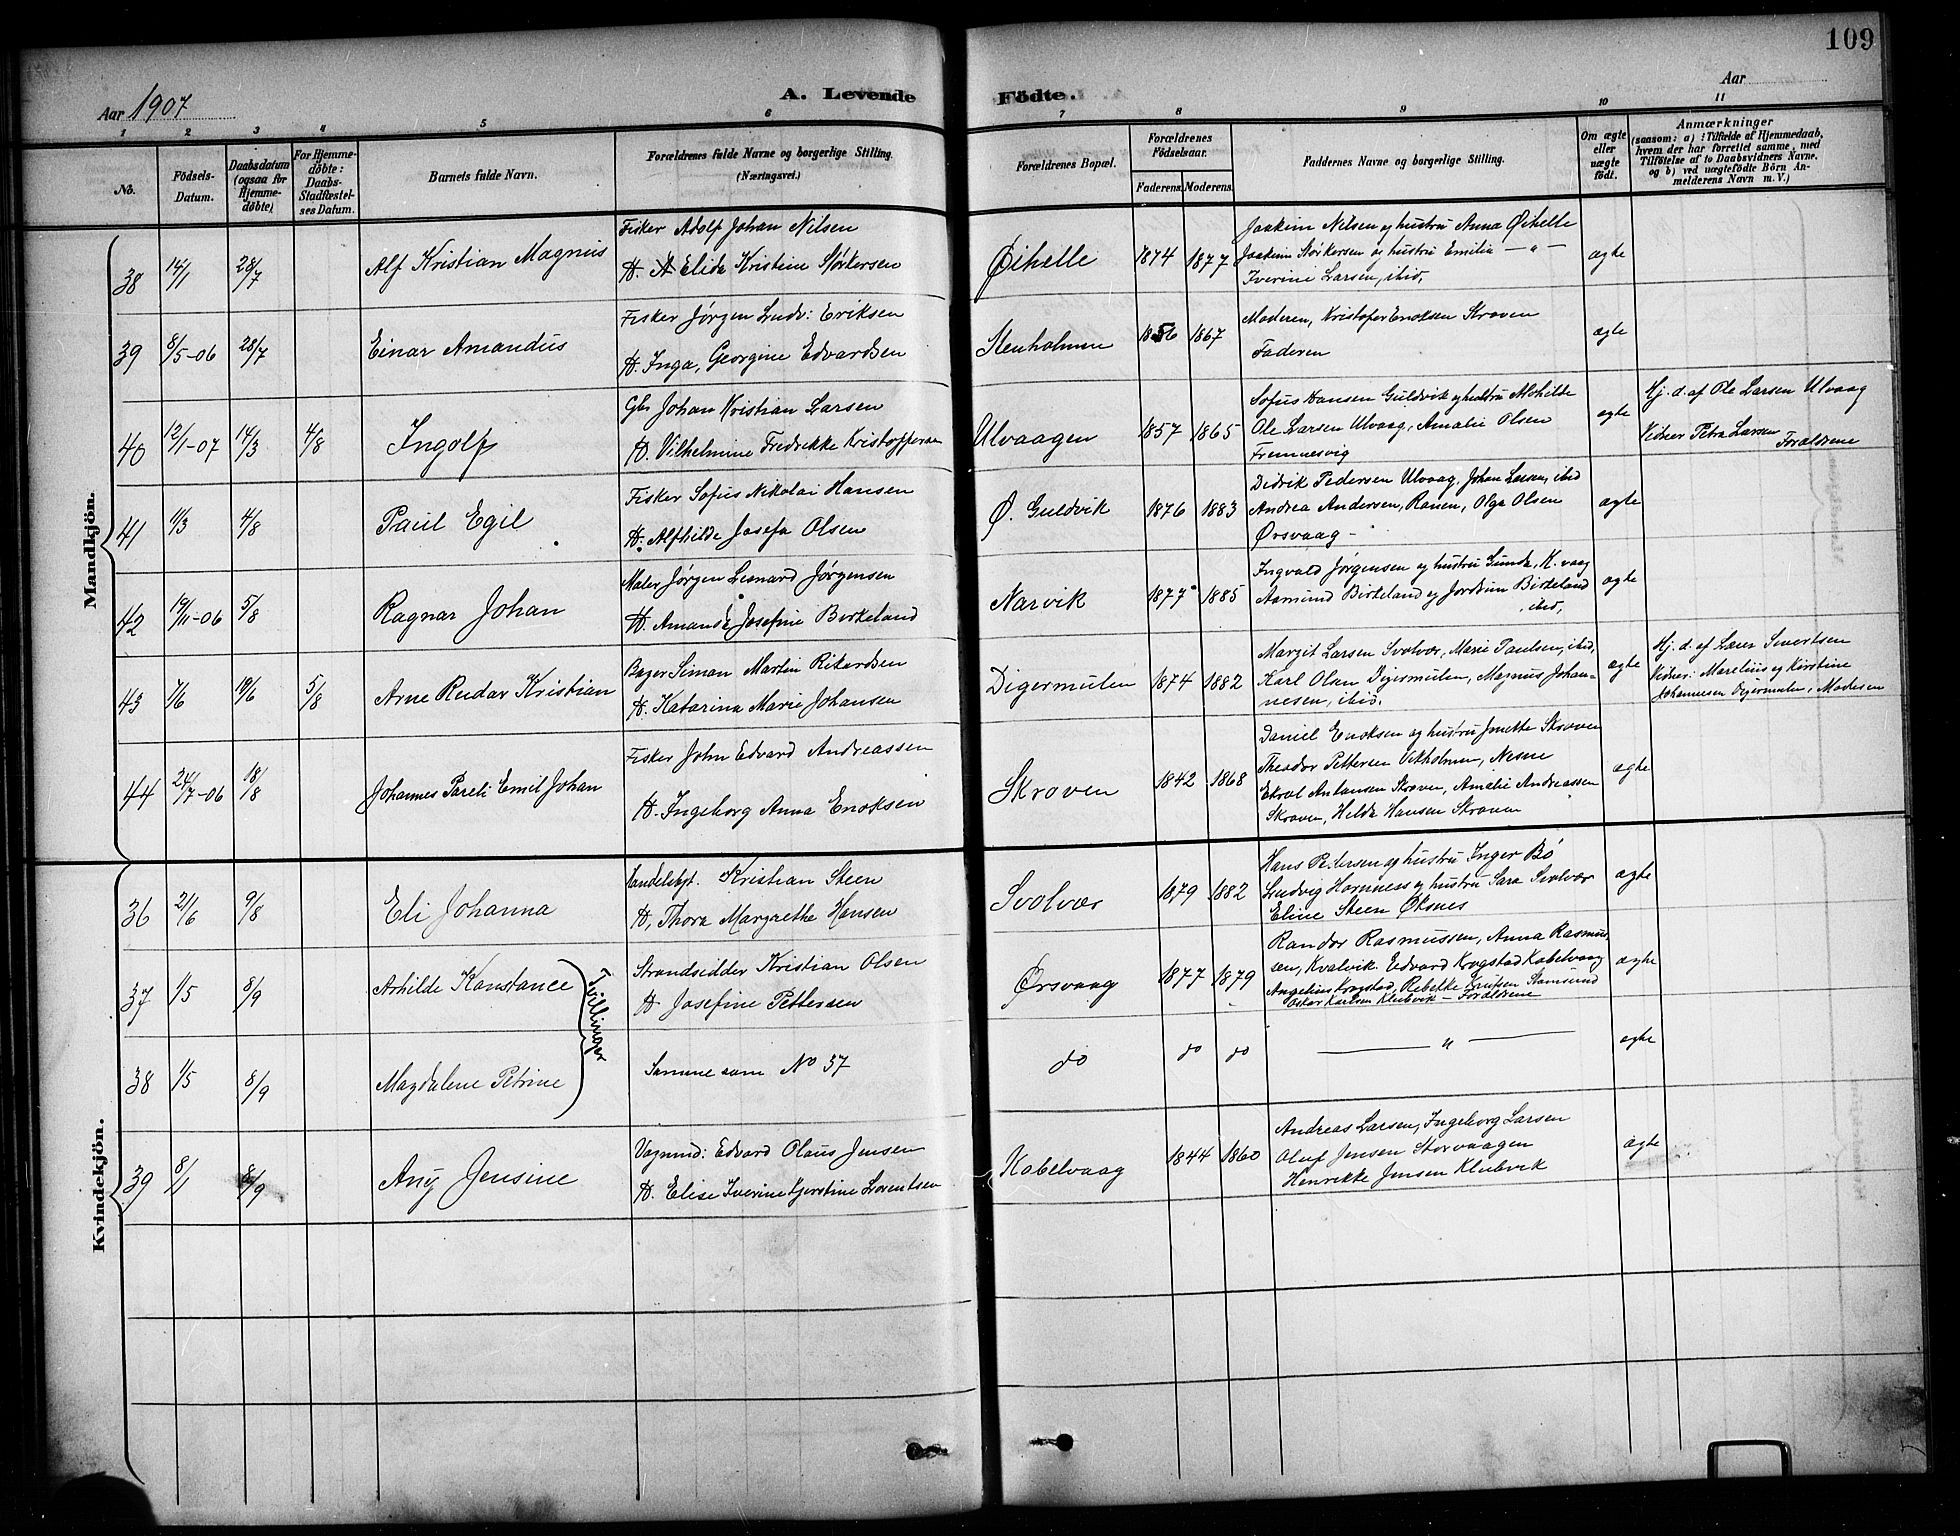 109
Aar 1907
A. Levende
Födte.
Aar
1 2 3 4 5 6 7 8 9 10 11
No.
Födsels-Datum.
Daabsdatum (ogsaa for Hjemme-døbte)
For Hjemme-døbte: Daabs-Stadfæstelses Datum.
Barnets fulde Navn.
Forældrenes fulde Navne og borgerlige Stilling. (Næringsvei.)
Forældrenes Bopæl.
Forældrenes Födselsaar.
Faderens. Moderens.
Faddernes Navne og borgerlige Stilling.
Om ægte eller uægte födt.
Anmærkninger
(saasom: a) i Tilfælde af Hjemmedaab,
hvem der har forrettet samme, med
Tilföielse af to Daabsvidners Navne,
og b) ved uægtefödte Börn An-
melderens Navn m. V.)
Mandkjön.
38 14/1 28/7 Alf Kristian Magnus
Fisker Adolf Johan Nilsen
H. Elida Kristine Størkersen
Øihelle 1874 1877
Joakim Nilsen og hustru Anna Øihelle
Joakim Størkersen og hustru Emilie — " —
Iverine Larsen, ibid,
ægte
39 8/5-06 28/7 Einar Amandus
Fisker Jørgen Ludv: Eriksen
H. Inga, Georgine Edvardsen
Stenholmen 1856 1867
Moderen, Kristofer Enoksen Skroven
Faderen
ægte
40 12/1-07 14/3 4/8 Ingolf
Gbr Johan Kristian Larsen
H. Vilhelmine Fredrikke Kristoffersen
Ulvaagen 1857 1865
Sofus Hansen Guldvik og hustru Alfhilde
Ole Larsen Ulvaag, Amalie Olsen
ægte
Hj. d. af Ole Larsen Ulvaag
Vidner Petra Larsen Forældrene
41 1/3 4/8 Paul Egil
Fisker Sofus Nikolai Hansen
H. Alfhilde Josefa Olsen
Ø. Guldvik 1876 1883
Didrik Pedersen Ulvaag, Johan Larsen, ibid
Andrea Andersen, Ranen, Olga Olsen
Ørsvaag -
ægte
42 19/11-06 5/8 Ragnar Johan
Maler Jørgen Leonard Jørgensen
H. Amanda Josefine Birkeland
Narvik 1877 1885
Ingvald Jørgensen og hustru Gunda, K. vaag
Aamund Birkeland og Jordrun Birkeland
ibid,
ægte
43 7/6 19/6 5/8 Arne Reidar Kristian
Bager Simon Martin Rikardsen
H. Katarina Marie Johansen
Digermulen 1874 1882
Margit Larsen Svolvær, Marie Paulsen, ibid,
Karl Olsen Digermulen, Magnus Johan-
nesen, ibid.
ægte
Hj. d. af Lærer Sivertsen
Vidner: Marelius og Kirstine
Johannesen Digermulen, Moderen
44 24/7-06 18/8 Johannes Pareli Emil Johan
Fisker John Edvard Andreassen
H. Ingeborg Anna Enoksen
Skroven 1842 1868
Daniel Enoksen og hustru Jonette Skroven
Theodor Pettersen Vikholmen, Nesne
Antonsen Skroven, Amelie Andreassen
Skroven, Hilda Hansen Skroven
ægte
Kvindekjön.
36 21/6 9/8 Eli Johanna
Handelsbet. Kristian Steen
H, Thora Margrethe Hansen
Svolvær 1879 1882
Hans Pedersen og hustru Inger Bø
Ludvig Hornness og hustru Sara Svolvær
Eline Steen Øksnes
ægte
37 1/5 8/9 Arhilde Konstance
Tvillinger
Strandsidder Kristian Olsen
H Josefine Pettersen
Ørsvaag 1877 1879
Randor Rasmussen, Anna Rasmus,
sen, Kvalvik. Edvard Krogstad Kabelvaag
Angelius Krogstad, Rebekke Knutsen Stamsund
Oskar Karlsen Klubvik - Forældrene
ægte
38 1/5 8/9 Magdalene Petrine
Samme som No 37
do do do — " —
ægte
39 8/1 8/9 Any Jensine
Vognmd: Edvard Olaus Jensen
H. Elise Iverine Kjerstine Lorentsen
Kabelvaag 1844 1860
Andreas Larsen, Ingeborg Larsen
Oluf Jensen Storvaagen
Henrikke Jensen Klubvik
ægte